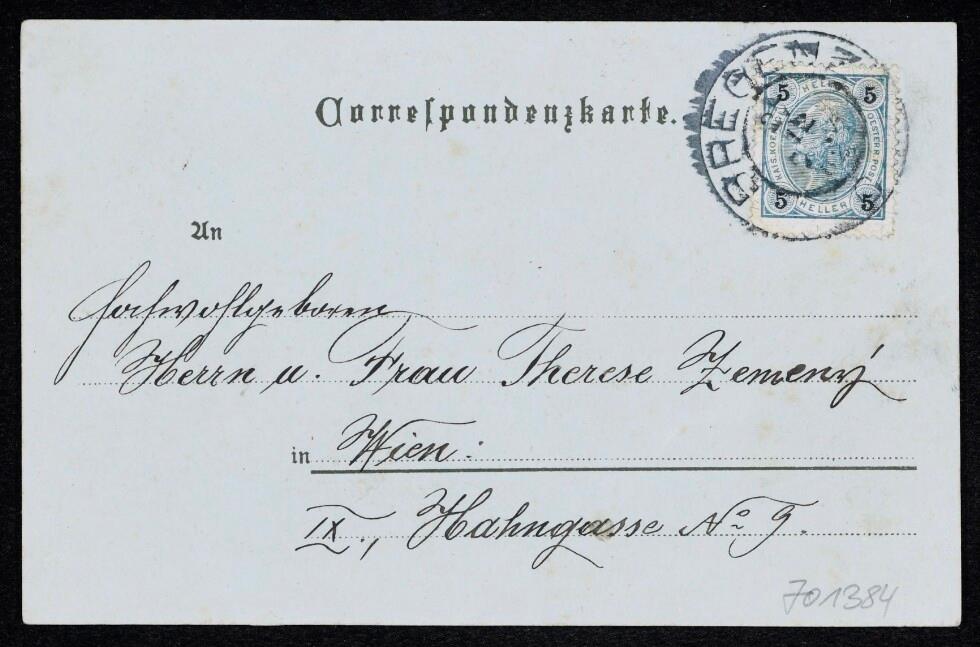 Correspondenzkarte.
BREGENZ
5 HELLER 5
KAIS. KOENIGL. OESTERR. POST
5 HELLER 5
An
Hochwohlgeboren
Herrn u. Frau Therese Zemený
in Wien.
IX., Hahngasse No 9.
701384